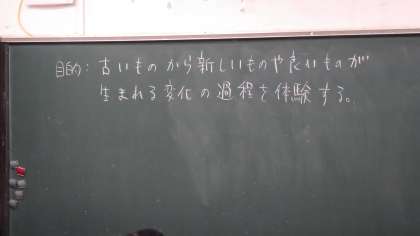 目的：古いものから新しいものや良いものが
生まれる変化の過程を体験する。